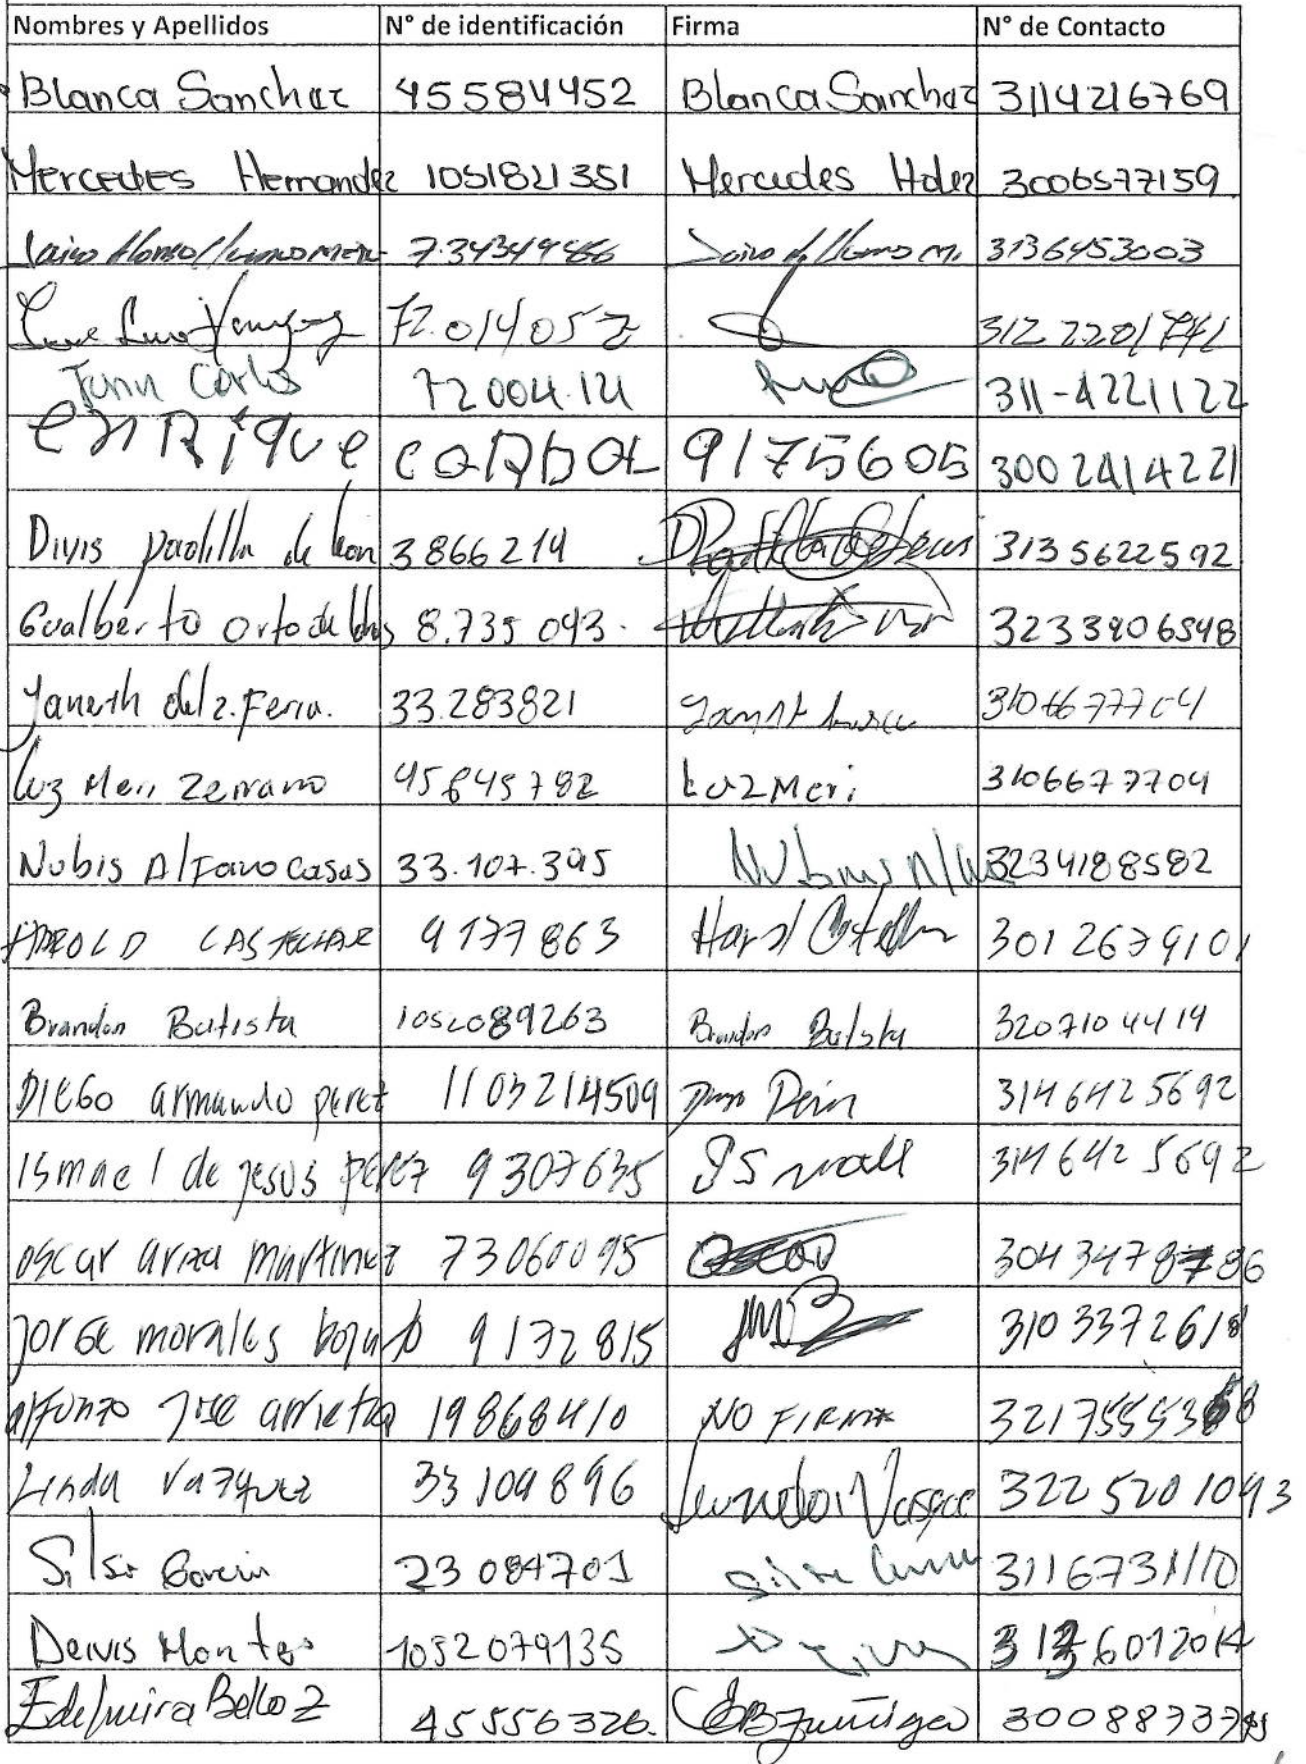 Nombres y Apellidos N° de identificación Firma N° de Contacto
Blanca Sanchez 45584452 Blanca Sanchez 3114216769
Mercedes Hernandez 1051821351 Mercedes Hdez 3006577159
Jairo Alonso 7.34349466 Jairo 3136453003
Jose Luis 72.014052 312 2201741
Juan Carlos 72004.121 311-4221122
enRique caRbaL 9175605 3002414221
Divis padilla de leon 3866214 3135622592
Gualberto Orto 8.735 093. 3233906548
Janeth del z. Feria. 33.283821 3106677704
Luz Meri Zerrano 45645782 LuzMeri 3106677704
Nubis Alfaro Casas 33.107.395 3234188582
HAROLD CASTELLAR 9177863 Harol 3012679101
Brandon Batista 1052089263 Brandon Batista 3207104419
DIEGO armando perez 1103214509 3146425692
Ismael de jesus perez 9307635 3146425692
oscar ariza martinez 73060095 Oscar 304347886
jorge morales 9172815 3103372618
alfonzo Jose arrieta 19868410 NO FIRMA
Linda Vazquez 33104896 3225201043
Silsa Garcia 23084701 3116731110
Deivis Montes 1052079135 6012014
Edelmira Bello Z 45556326. EBZuñiga